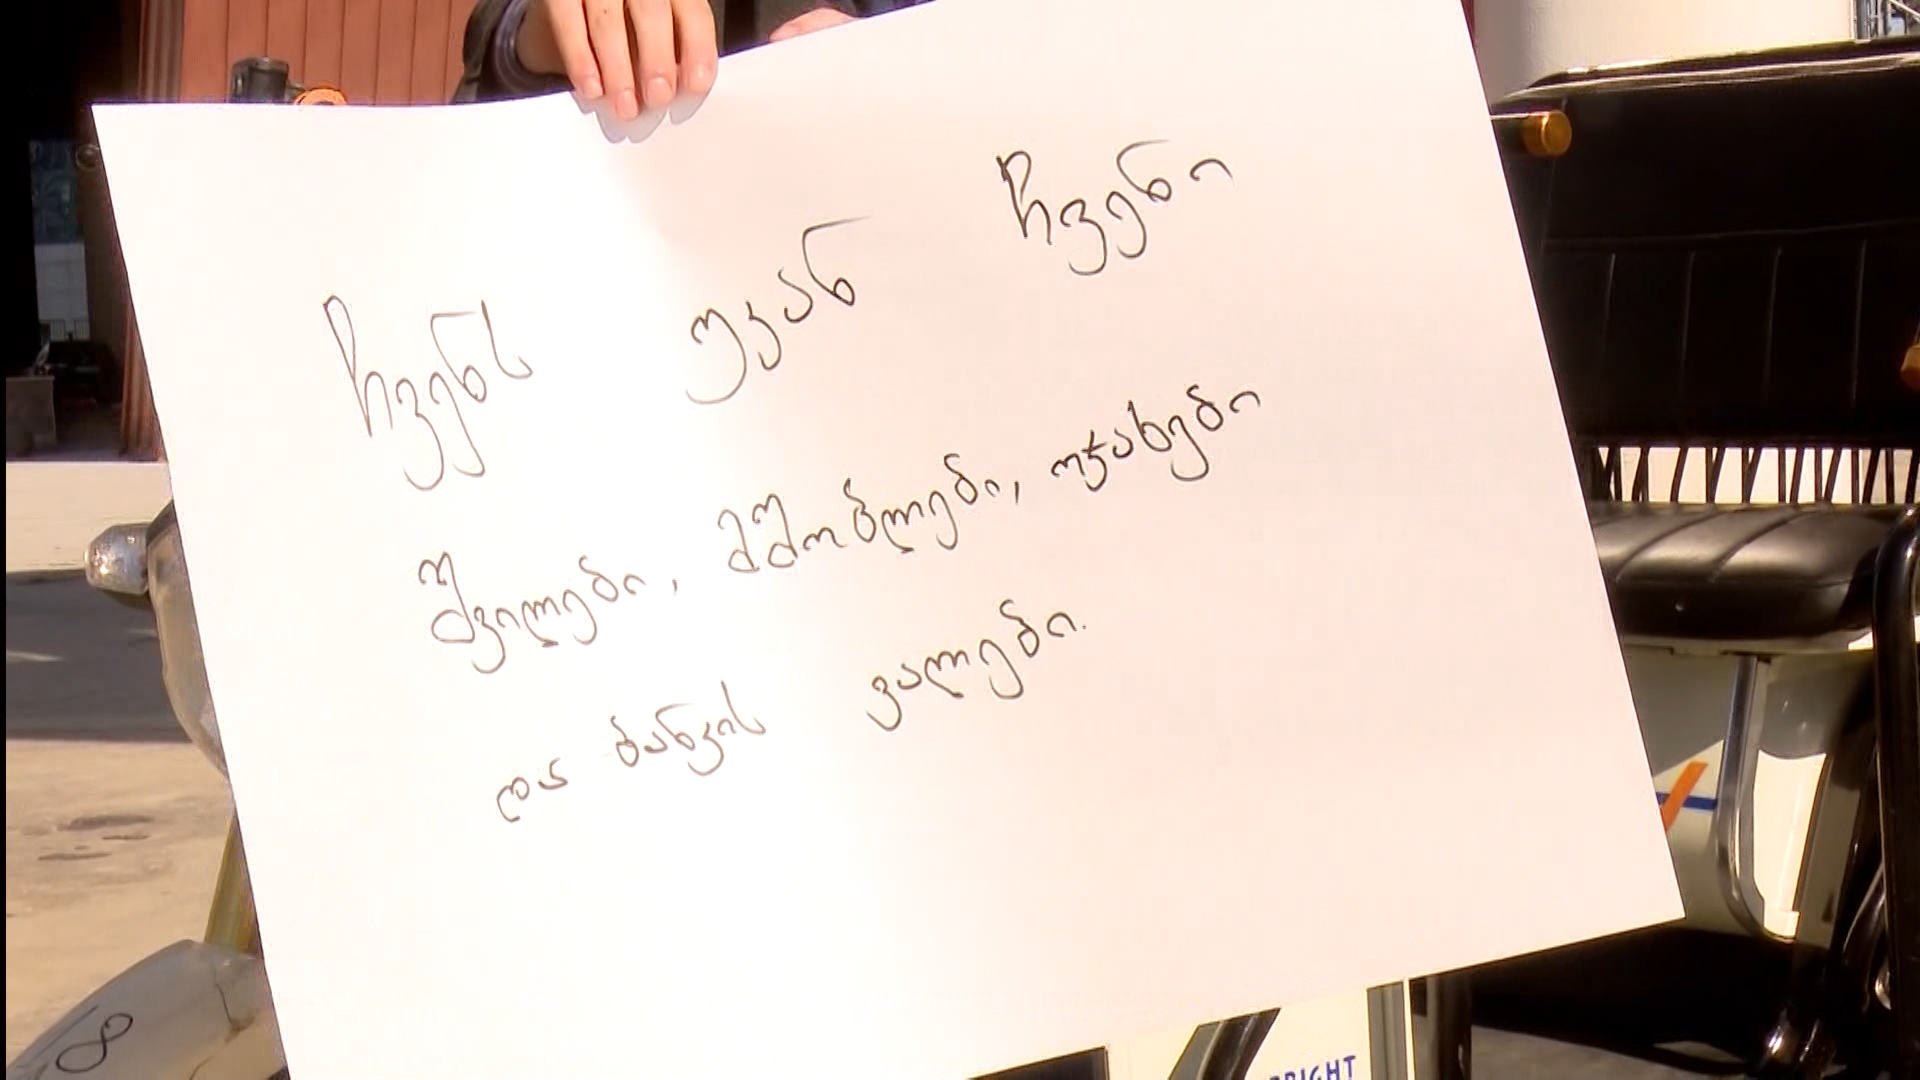 ჩვენს უკან ჩვენი
შვილები, მშობლები, ოჯახები
და ბანკის ვალები.
8
BRIGHT